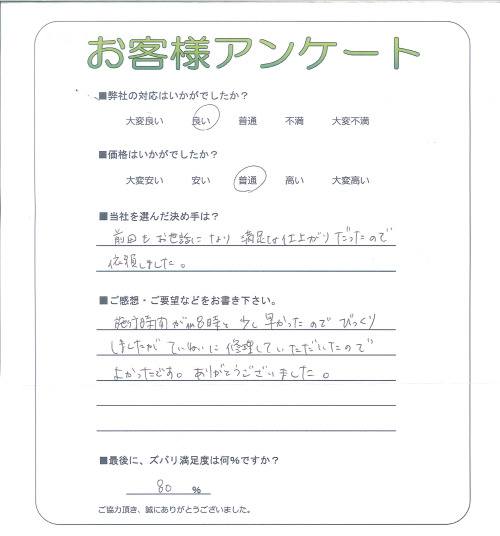 お客様アンケート
■弊社の対応はいかがでしたか？
大変良い 良い 普通 不満 大変不満
■価格はいかがでしたか？
大変安い 安い 普通 高い 大変高い
■当社を選んだ決め手は？
前回もお世話になり 満足な仕上がりだったので
依頼しました。
■ご感想・ご要望などをお書き下さい。
施行時間がAM8時と少し早かったので びっくり
しましたが ていねいに修理していただいたので
よかったです。ありがとうございました。
■最後に、ズバリ満足度は何%ですか？
80 %
ご協力頂き、誠にありがとうございました。